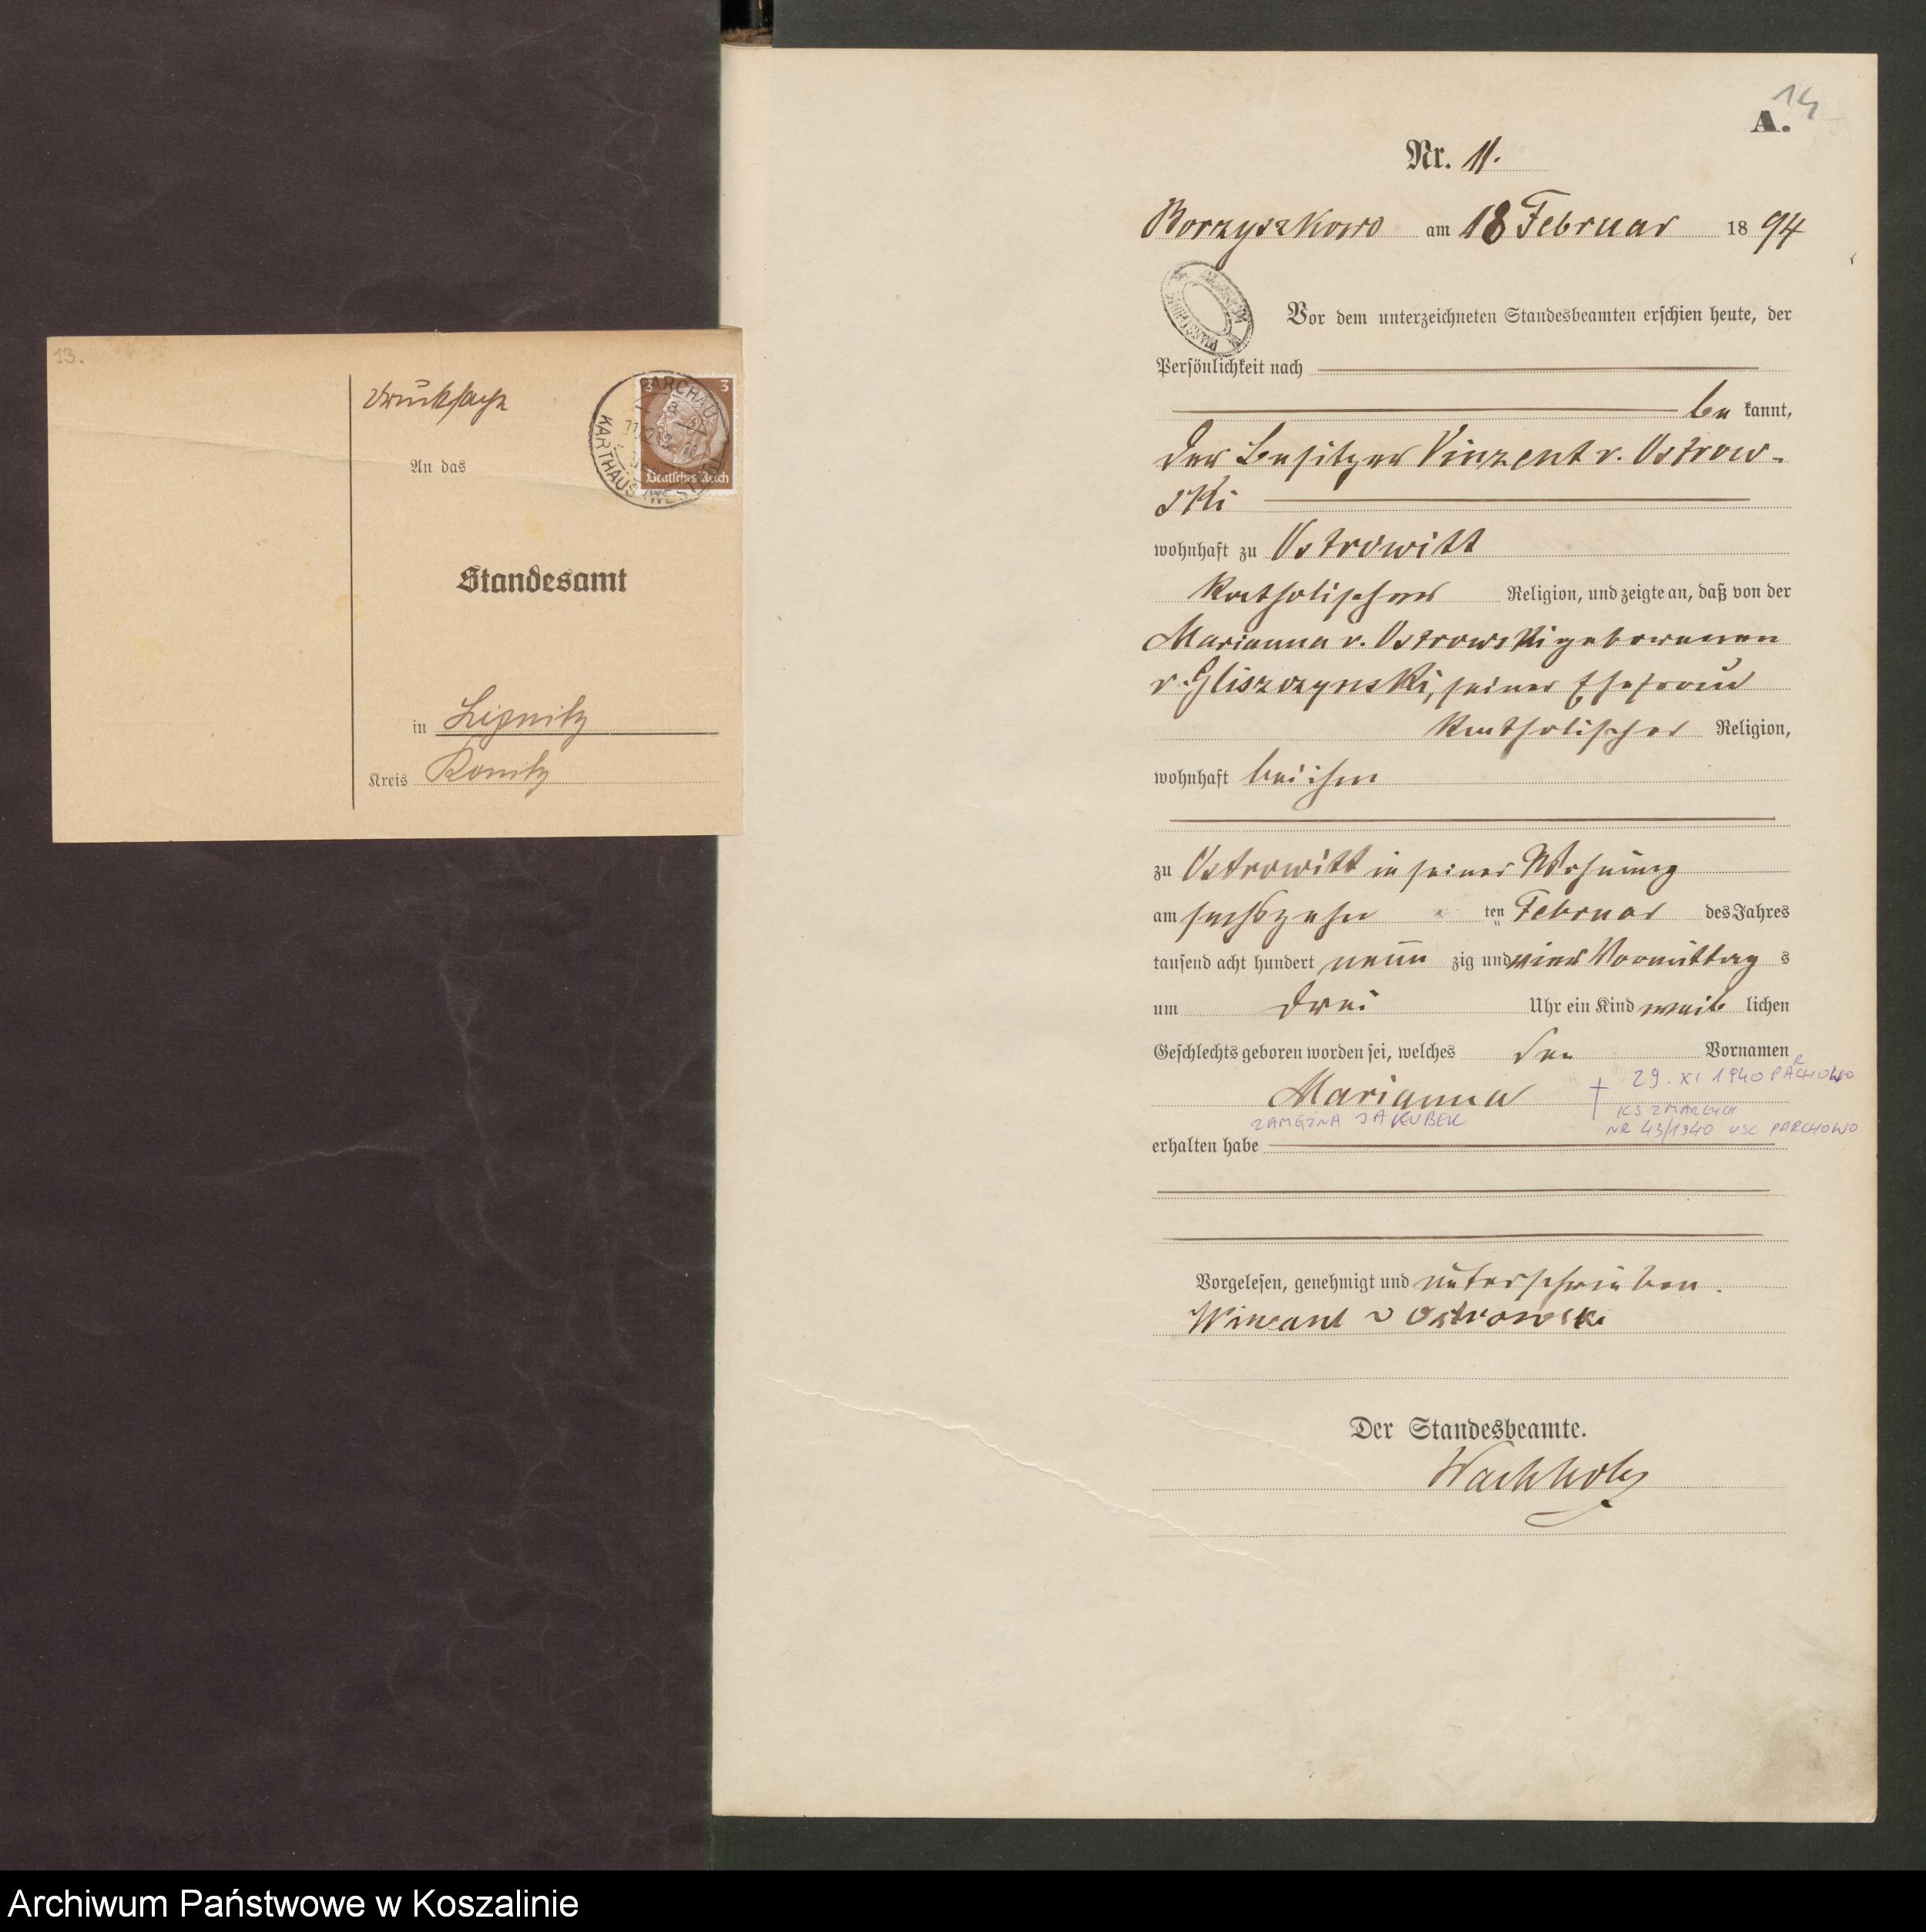 13.
Drucksache
An das
Standesamt
in Lipnitz
Kreis Konitz
3 3
PARCHAU
KARTHAUS (WESTPR)
Deutsches Reich
14
A.
Nr. 11.
Borzyszkowo am 18 Februar 18 94
Vor dem unterzeichneten Standesbeamten erschien heute, der
Persönlichkeit nach
be kannt,
der Besitzer Vinzent v. Ostrow-
ski
wohnhaft zu Ostrowitt
katholischer Religion, und zeigte an, daß von der
Marianna v. Ostrowski geborenen
v. Gliszczynski, seiner Ehefrau
katholischer Religion,
wohnhaft bei ihm
zu Ostrowitt in seiner Wohnung
am sechszehn ten Februar des Jahres
tausend acht hundert neun zig und vier Vormittag s
um drei Uhr ein Kind weib lichen
Geschlechts geboren worden sei, welches den Vornamen
Marianna
† 29. XI 1940 PARCHOWO
KS ZMARŁYCH
NR 43/1940 USC PARCHOWO
ZAMĘŻNA JAKUBEK
erhalten habe
Vorgelesen, genehmigt und unterschrieben.
Wincent v Ostrowski
Der Standesbeamte.
Wachholz
Archiwum Państwowe w Koszalinie